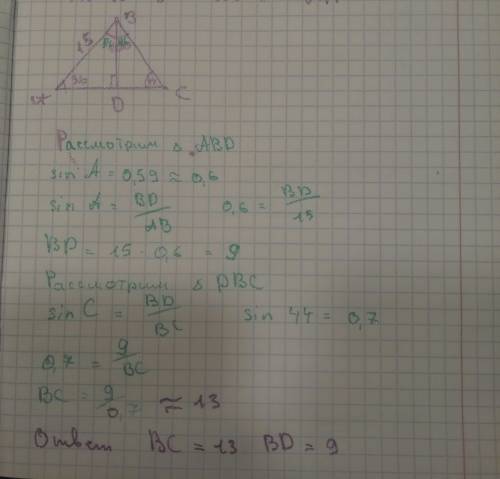 B
15
36
A
D
C
Рассмотрим △ ABD
sin A = 0,59 ≈ 0,6
sin A = BD/AB 0,6 = BD/15
BD = 15 · 0,6 = 9
Рассмотрим △ DBC
sin C = BD/BC sin 44 = 0,7
0,7 = 9/BC
BC = 9/0,7 ≈ 13
Ответ BC = 13 BD = 9